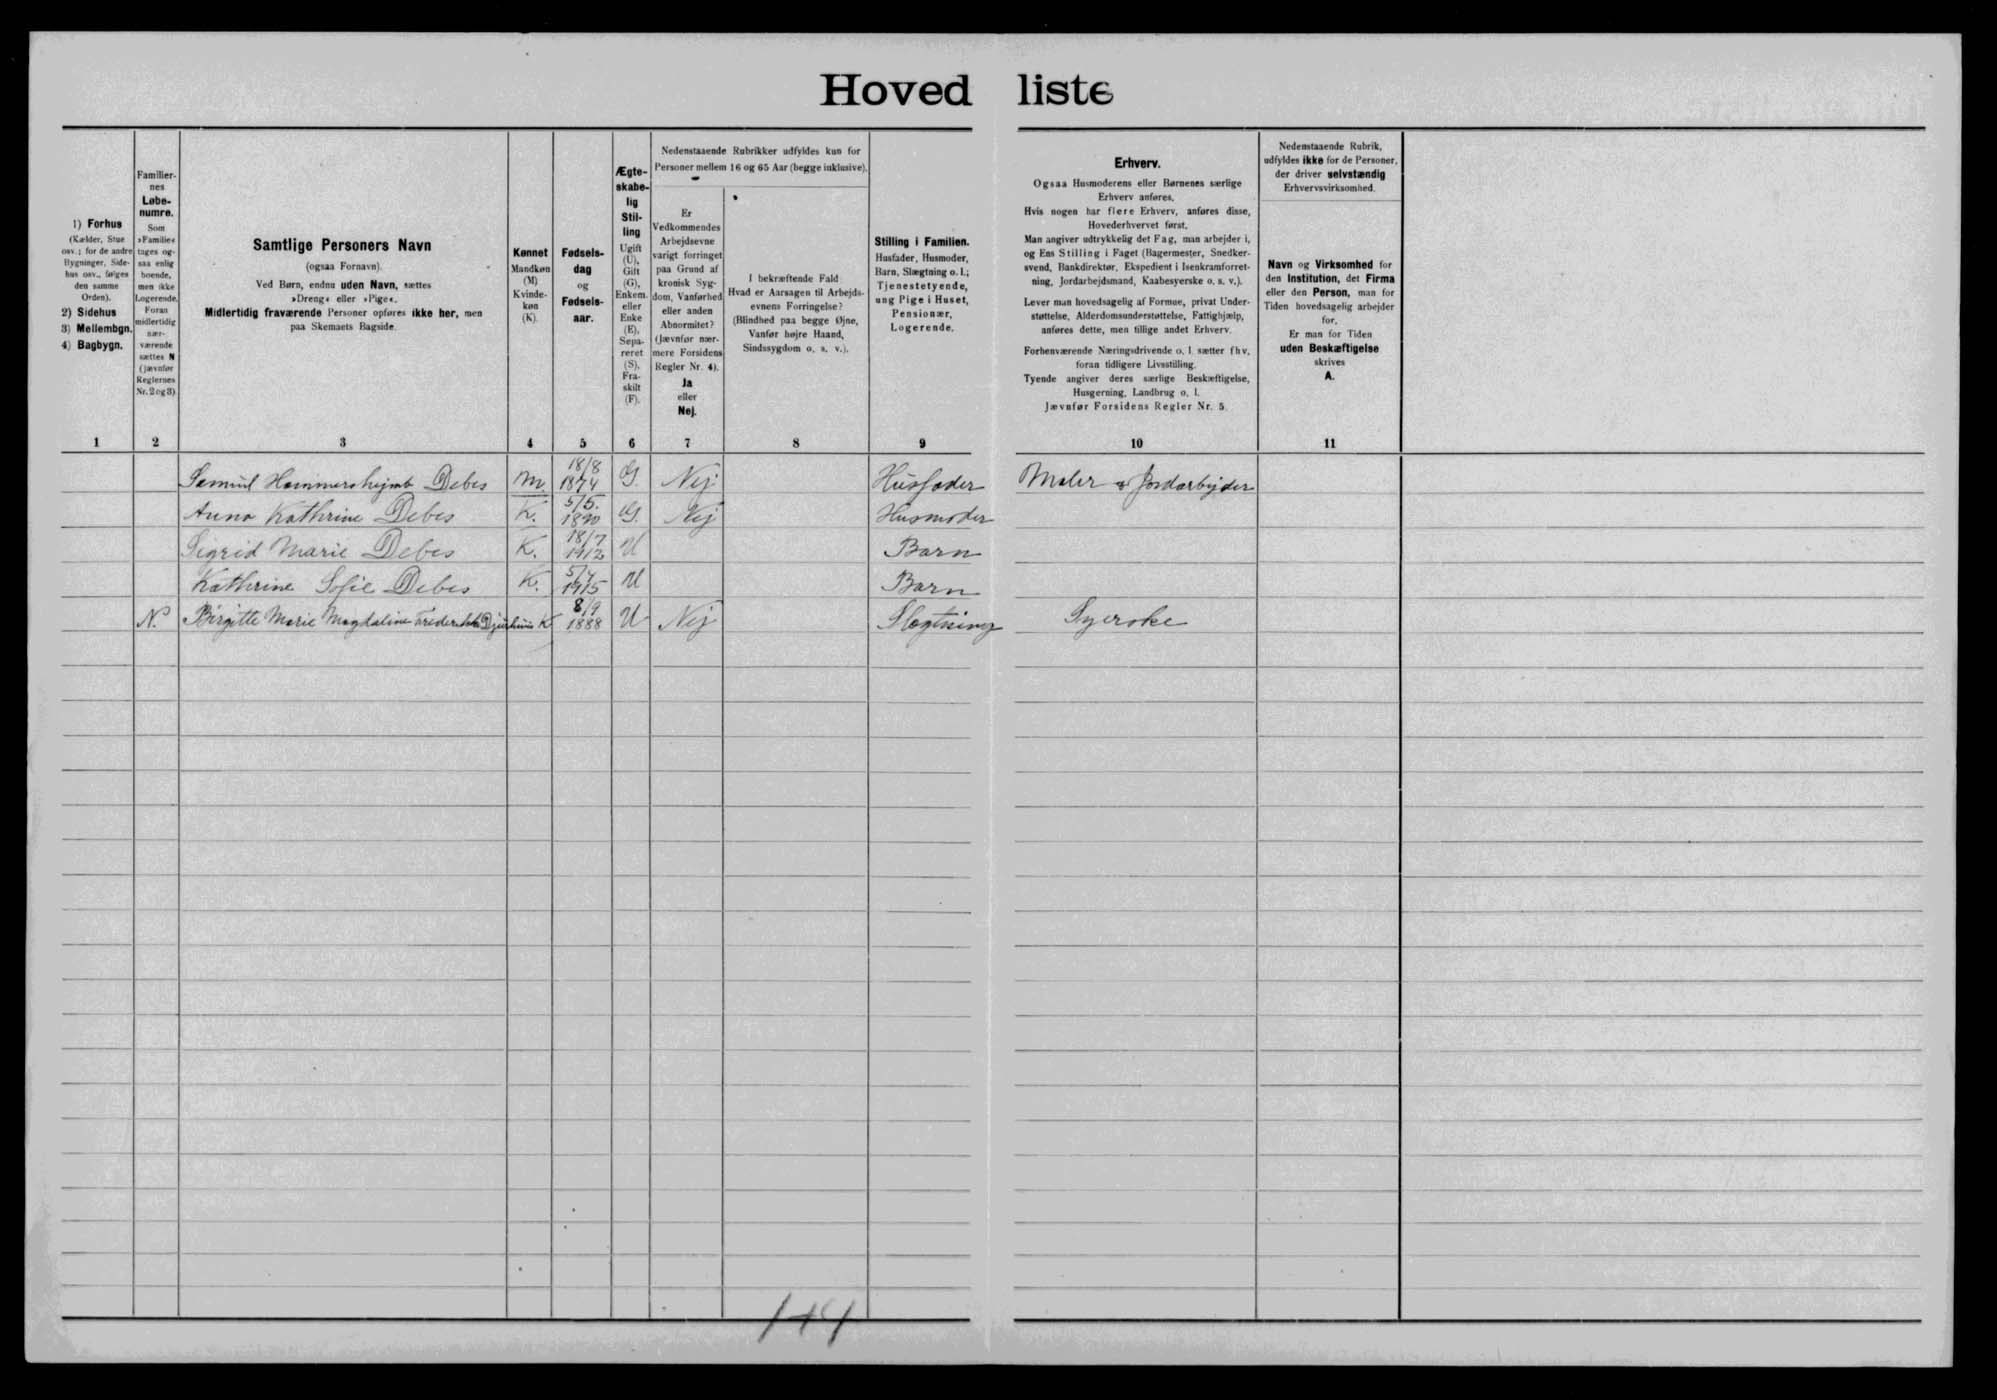 Hoved liste
1) Forhus
(Kælder, Stue
osv.; for de andre
Bygninger, Side-
hus osv., følges
den samme
Orden).
2) Sidehus
3) Mellembgn.
4) Bagbygn.
Familier-
nes
Løbe-
numre.
Som
»Familie«
tages og-
saa enlig
boende,
men ikke
Logerende.
Foran
midlertidig
nær-
værende
sættes N
(jævnfør
Reglernes
Nr. 2 og 3)
Samtlige Personers Navn
(ogsaa Fornavn).
Ved Børn, endnu uden Navn, sættes
»Dreng« eller »Pige«.
Midlertidig fraværende Personer opføres ikke her, men
paa Skemaets Bagside.
Kønnet
Mandkøn
(M)
Kvinde-
køn
(K).
Fødsels-
dag
og
Fødsels-
aar.
Ægte-
skabe-
lig
Stil-
ling
Ugift
(U),
Gift
(G),
Enkem.
eller
Enke
(E),
Sepa-
reret
(S),
Fra-
skilt
(F).
Nedenstaaende Rubrikker udfyldes kun for
Personer mellem 16 og 65 Aar (begge inklusive).
Er
Vedkommendes
Arbejdsevne
varigt forringet
paa Grund af
kronisk Syg-
dom, Vanførhed
eller anden
Abnormitet?
(Jævnfør nær-
mere Forsidens
Regler Nr. 4).
Ja
eller
Nej.
I bekræftende Fald
Hvad er Aarsagen til Arbejds-
evnens Forringelse?
(Blindhed paa begge Øjne,
Vanfør højre Haand,
Sindssygdom o. s. v.).
Stilling i Familien.
Husfader, Husmoder,
Barn, Slægtning o. l.;
Tjenestetyende,
ung Pige i Huset,
Pensionær,
Logerende.
Erhverv.
Ogsaa Husmoderens eller Børnenes særlige
Erhverv anføres.
Hvis nogen har flere Erhverv, anføres disse,
Hovederhvervet først.
Man angiver udtrykkelig det Fag, man arbejder i,
og Ens Stilling i Faget (Bagermester, Snedker-
svend, Bankdirektør, Ekspedient i Isenkramforret-
ning, Jordarbejdsmand, Kaabesyerske o. s. v.).
Lever man hovedsagelig af Formue, privat Under-
støttelse, Alderdomsunderstøttelse, Fattighjælp,
anføres dette, men tillige andet Erhverv.
Forhenværende Næringsdrivende o. l. sætter fhv.
foran tidligere Livsstilling.
Tyende angiver deres særlige Beskæftigelse,
Husgerning, Landbrug o. l.
Jævnfør Forsidens Regler Nr. 5.
Nedenstaaende Rubrik,
udfyldes ikke for de Personer,
der driver selvstændig
Erhvervsvirksomhed.
Navn og Virksomhed for
den Institution, det Firma
eller den Person, man for
Tiden hovedsagelig arbejder
for.
Er man for Tiden
uden Beskæftigelse
skrives
A.
1 2 3 4 5 6 7 8 9 10 11
Samuel Hammershejmb Debes M 18/8 1874 G. Nej Husfader Maler Jordarbejder
Anna Kathrine Debes K. 5/5. 1890 G. Nej Husmoder
Sigrid Marie Debes K. 18/7 1912 U Barn
Katherine Sofie Debes K. 5/4 1915 U Barn
N. Birgitte Marie Magdaline K 8/9 1888 U Nej Slægtning Syerske